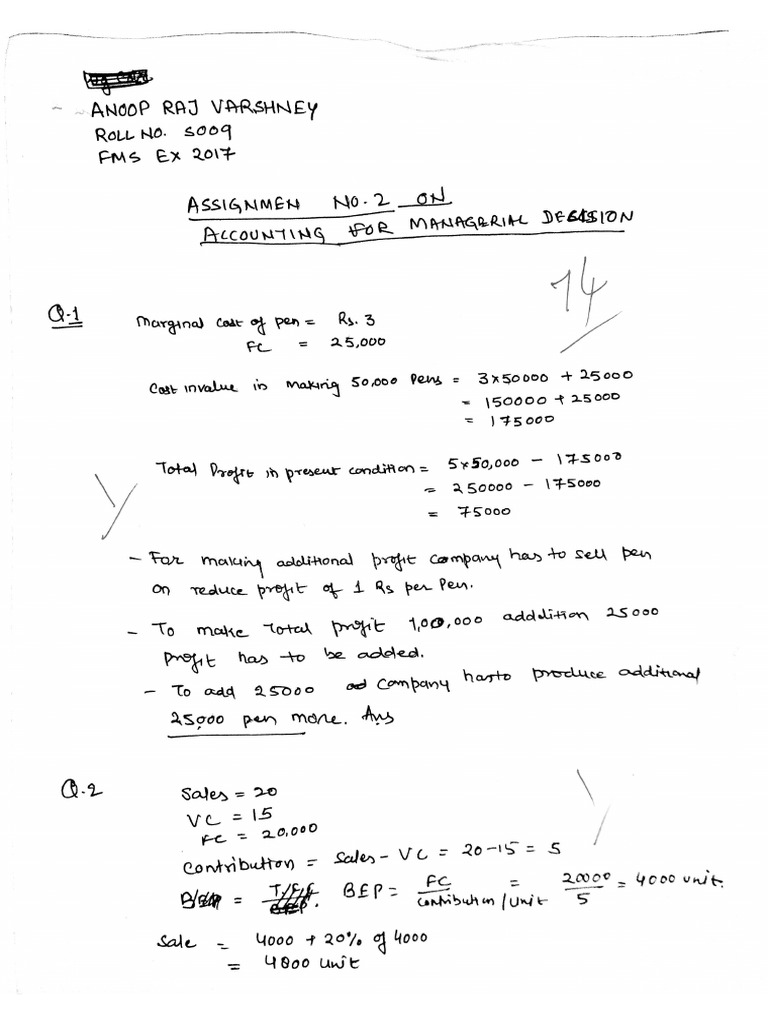 ANOOP RAJ VARSHNEY
ROLL NO. S009
FMS EX 2017
ASSIGNMEN NO.2 ON
ACCOUNTING FOR MANAGERIAL DECISION
14
Q.1
Marginal cost of pen = Rs. 3
FC = 25,000
Cost invalue in making 50,000 Pens = 3×50000 + 25000
= 150000 + 25000
= 175000
Total Profit in present condition = 5×50,000 - 175000
= 250000 - 175000
= 75000
- For making additional profit company has to sell pen
on reduce profit of 1 Rs per Pen.
- To make Total profit 1,00,000 adddition 25000
profit has to be added.
- To add 25000 company hasto produce additional
25,000 pen more. Ans
Q.2
Sales = 20
VC = 15
FC = 20,000
Contribution = Sales - VC = 20-15 = 5
BEP = FC / Contribution/Unit = 20000 / 5 = 4000 unit.
Sale = 4000 + 20% of 4000
= 4800 unit